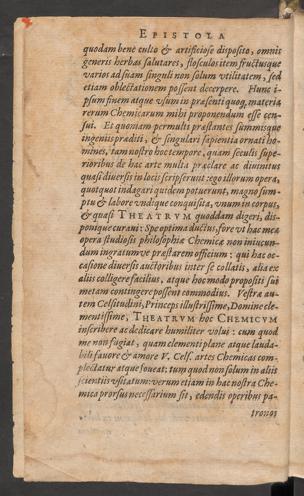 EPISTOLA
quodam bene culto & artificiose disposito, omnis
generis herbas salutares, flosculos item fructusque
varios ad suam singuli non solum vtilitatem, sed
etiam oblectationem possent decerpere. Hunc i-
psum finem atque vsum in præsenti quoq, materia
rerum Chemicarum mihi proponendum esse cen-
sui. Et quoniam permulti præstantes summisque
ingeniis præditi, & singulari sapientia ornati ho-
mines, tam nostro hoc tempore, quam seculis supe-
rioribus de hac arte multa præclare ac diuinitus
quasi diuersis in locis scripserunt: ego illorum opera,
quotquot indagari quidem potuerunt, magno sum-
ptu & labore vndique conquisita, vnum in corpus,
& quasi THEATRVM quoddam digeri, dis-
ponique curaui: Spe optima ductus, fore vt hac mea
opera studiosis philosophiæ Chemicæ non iniucun-
dum ingratumve præstarem officium: qui hac oc-
casione diuersis auctoribus inter se collatis, alia ex
aliis colligere facilius, atque hoc modo propositi sui
metam contingere possent commodius. Vestræ au-
tem Celsitudini, Princeps illustrissime, Domine cle-
mentissime, THEATRVM hoc CHEMICVM
inscribere ac dedicare humiliter volui: cum quod
me non fugiat, quam clementi plane atque lauda-
bili fauore & amore V. Cels. artes Chemicas com-
plectatur atque foueat: tum quod non solum in aliis
scientiis vsitatum: verum etiam in hac nostra Che-
mica prorsus necessarium sit, edendis operibus pa-
tronos